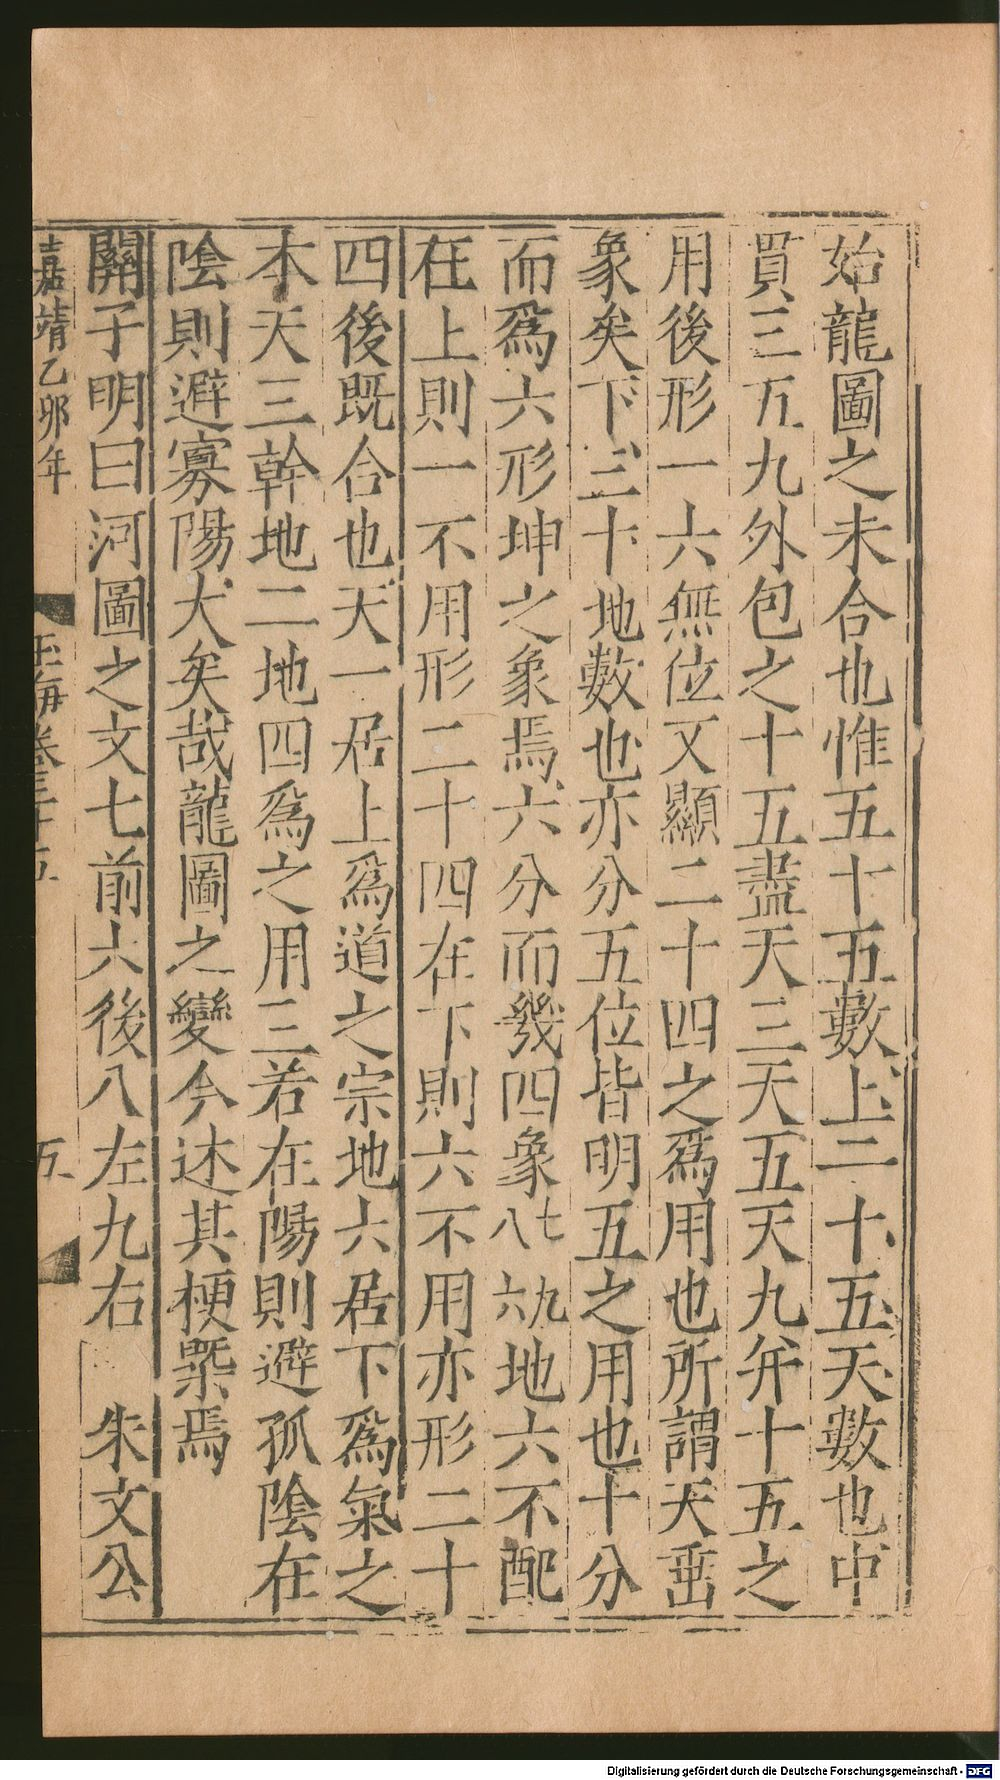 始龍圖之未合也惟五十五數上二十五天數也中
貫三五九外包之十五盡天三天五天九并十五之
用後形一六無位又顯二十四之爲用也所謂天垂
象矣下三十地數也亦分五位皆明五之用也十分
而爲六形坤之象焉六分而幾四象七九八六地六不配
在上則一不用形二十四在下則六不用亦形二十
四後既合也天一居上爲道之宗地六居下爲氣之
本天三幹地二地四爲之用三若在陽則避孤陰在
陰則避寡陽大矣哉龍圖之變今述其梗槩焉
關子明曰河圖之文七前六後八左九右 朱文公
嘉靖乙卯年 玉海卷三十五 五
Digitalisierung gefördert durch die Deutsche Forschungsgemeinschaft - DFG